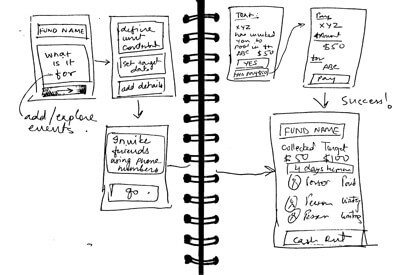 FUND NAME
what is
it
for
add/explore
events.
define
unit
set target
date.
add details
Invite
friends
using phone
numbers
go.
Text:
XYZ
has invited
you to
pool in for
ABC $50
YES
Pay
XYZ
Amount
$50
for
ABC
Pay
Success!
FUND NAME
Collected Target
$50 $100
4 days
Person Paid
Person
Person waiting
Cash Out